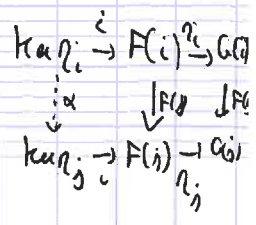 ker η_i →^i F(i) →^{η_i} G(i)
α ↓F(g) ↓F(
ker η_j →_i F(j) →_{η_j} G(j)